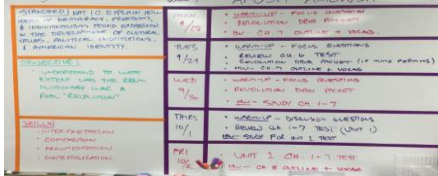 STANDARD: NAT 1.0 EXPLAIN HOW
IDEAS OF DEMOCRACY, FREEDOM,
& INDIVIDUALISM FOUND EXPRESSION
IN THE DEVELOPMENT OF CULTURAL
VALUES, POLITICAL INSTITUTIONS,
& AMERICAN IDENTITY.
OBJECTIVE:
- UNDERSTAND TO WHAT
EXTENT WAS THE
REVOLUTIONARY WAR A
REAL "REVOLUTION"
SKILLS
- INTERPRETATION
- COMPARISON
- ARGUMENTATION
- CONTEXTUALIZATION
- WARMUP - FOCUS QUESTIONS
- REVOLUTION DBQ PACKET
- HW - CH. 7 OUTLINE + VOCAB
TUES
9/29
- WARMUP - FOCUS QUESTIONS
- REVIEW CH 6 TEST
- REVOLUTION DBQ PACKET (IF TIME PERMITS)
- HW - CH. 7 OUTLINE + VOCAB
WED
9/30
- WARMUP - FOCUS QUESTIONS
- REVOLUTION DBQ PACKET
- HW - STUDY CH 1-7
THURS
10/1
- WARMUP - DISCUSSION QUESTIONS
- REVIEW CH. 1-7 TEST (UNIT 1)
HW - STUDY FOR UNIT 1 TEST
FRI
10/2
- UNIT 1 CH. 1-7 TEST
- HW - CH 8 OUTLINE + VOCAB